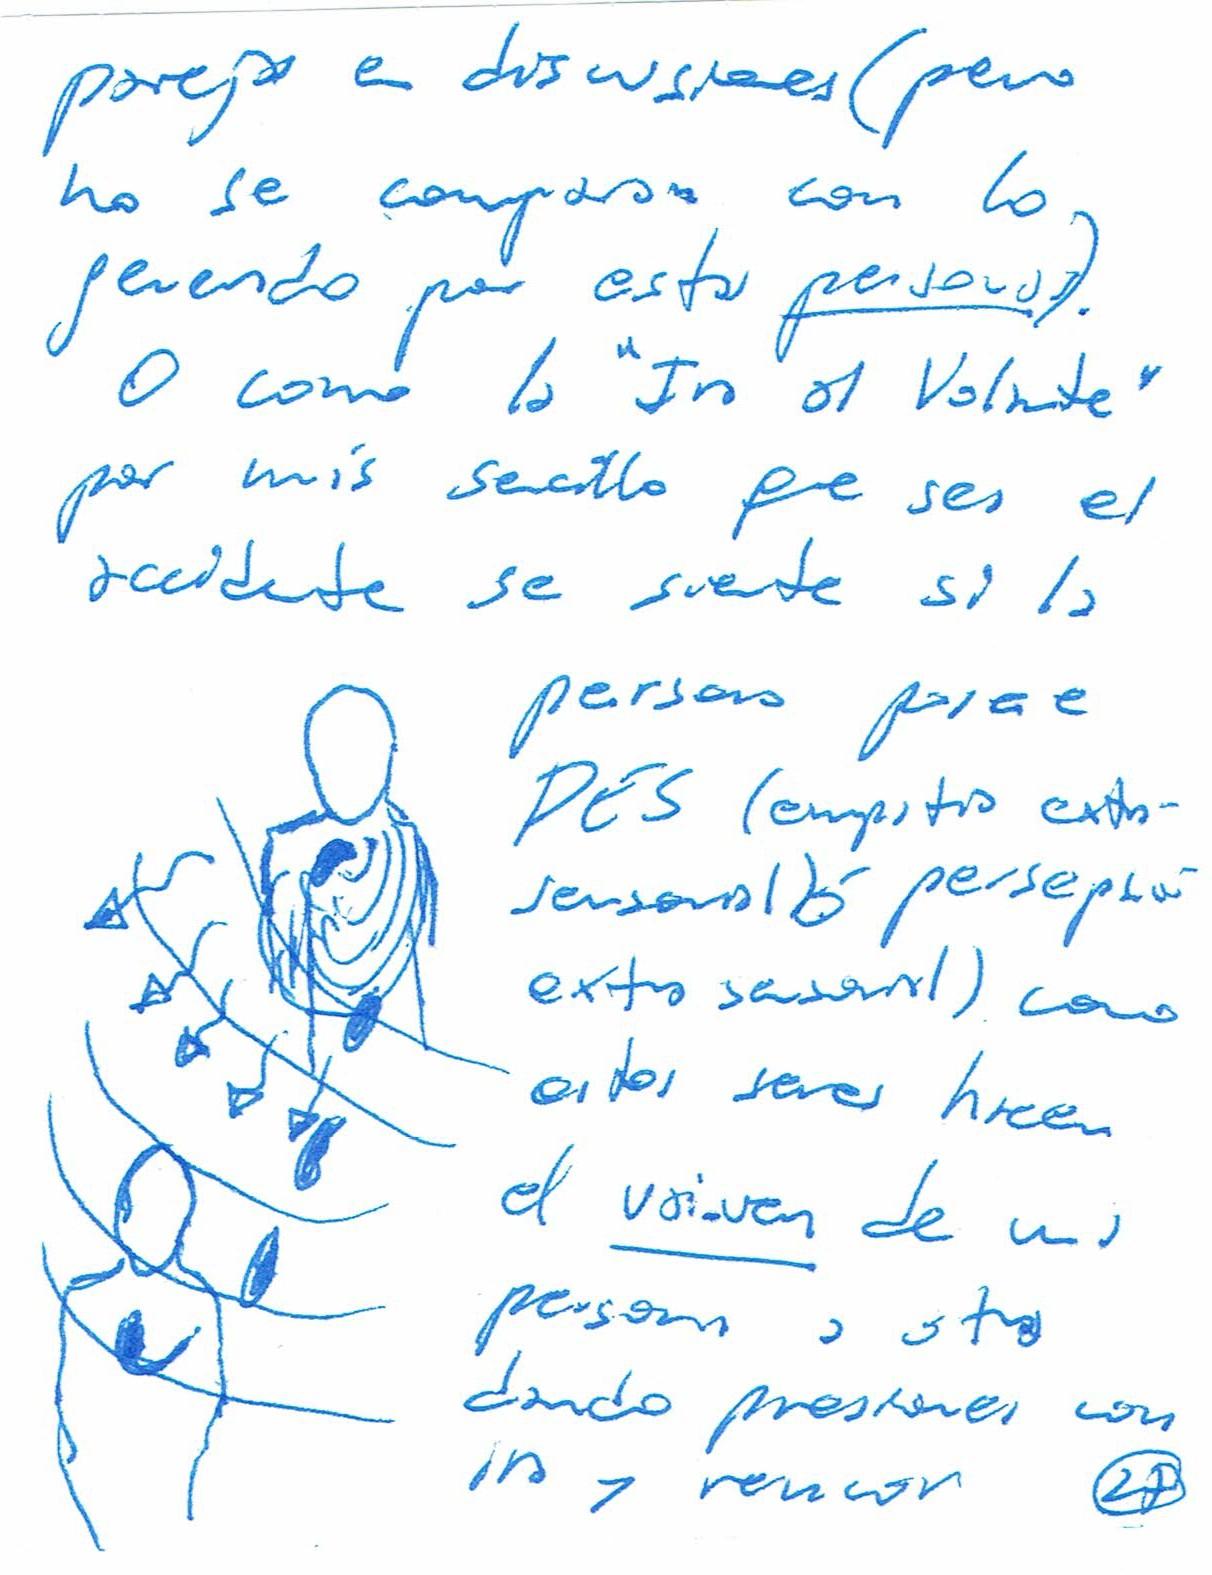 pareja en discusiones (pero
no se comparan con lo
generado por esta persona).
O como la "Ira al Volante"
por más sencillo que sea el
accidente se siente si la
persona posee
PES (empatia extra-
sensorial) ó persepsión
extra sensorial) como
estos seres hacen
el vai-ven de una
persona a otra
dando presiones con
ira y rencor 27